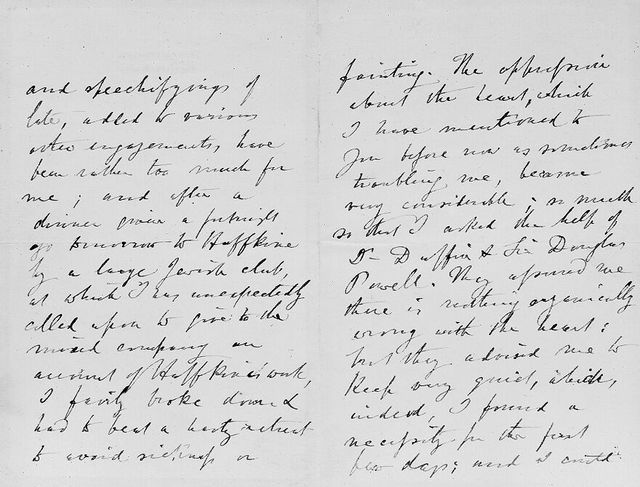 and speechifyings of
late, added to various
other engagements, have
been rather too much for
me; and after a
dinner given a fortnight
ago tomorrow to Haffkine
by a large Jewish club,
at which I was unexpectedly
called upon to give to the
mixed company an
account of Haffkine's work,
I fairly broke down &
had to beat a hasty retreat
to avoid sickness or
fainting. The oppression
about the heart, which
I have mentioned to
you before now as sometimes
troubling me, became
very considerable; so much
so that I asked the help of
Dr Duffin & Sir Douglas
Powell. They assured me
there is nothing organically
wrong with the heart:
but they advised me to
keep very quiet, which,
indeed, I found a
necessity for the first
few days; and I could